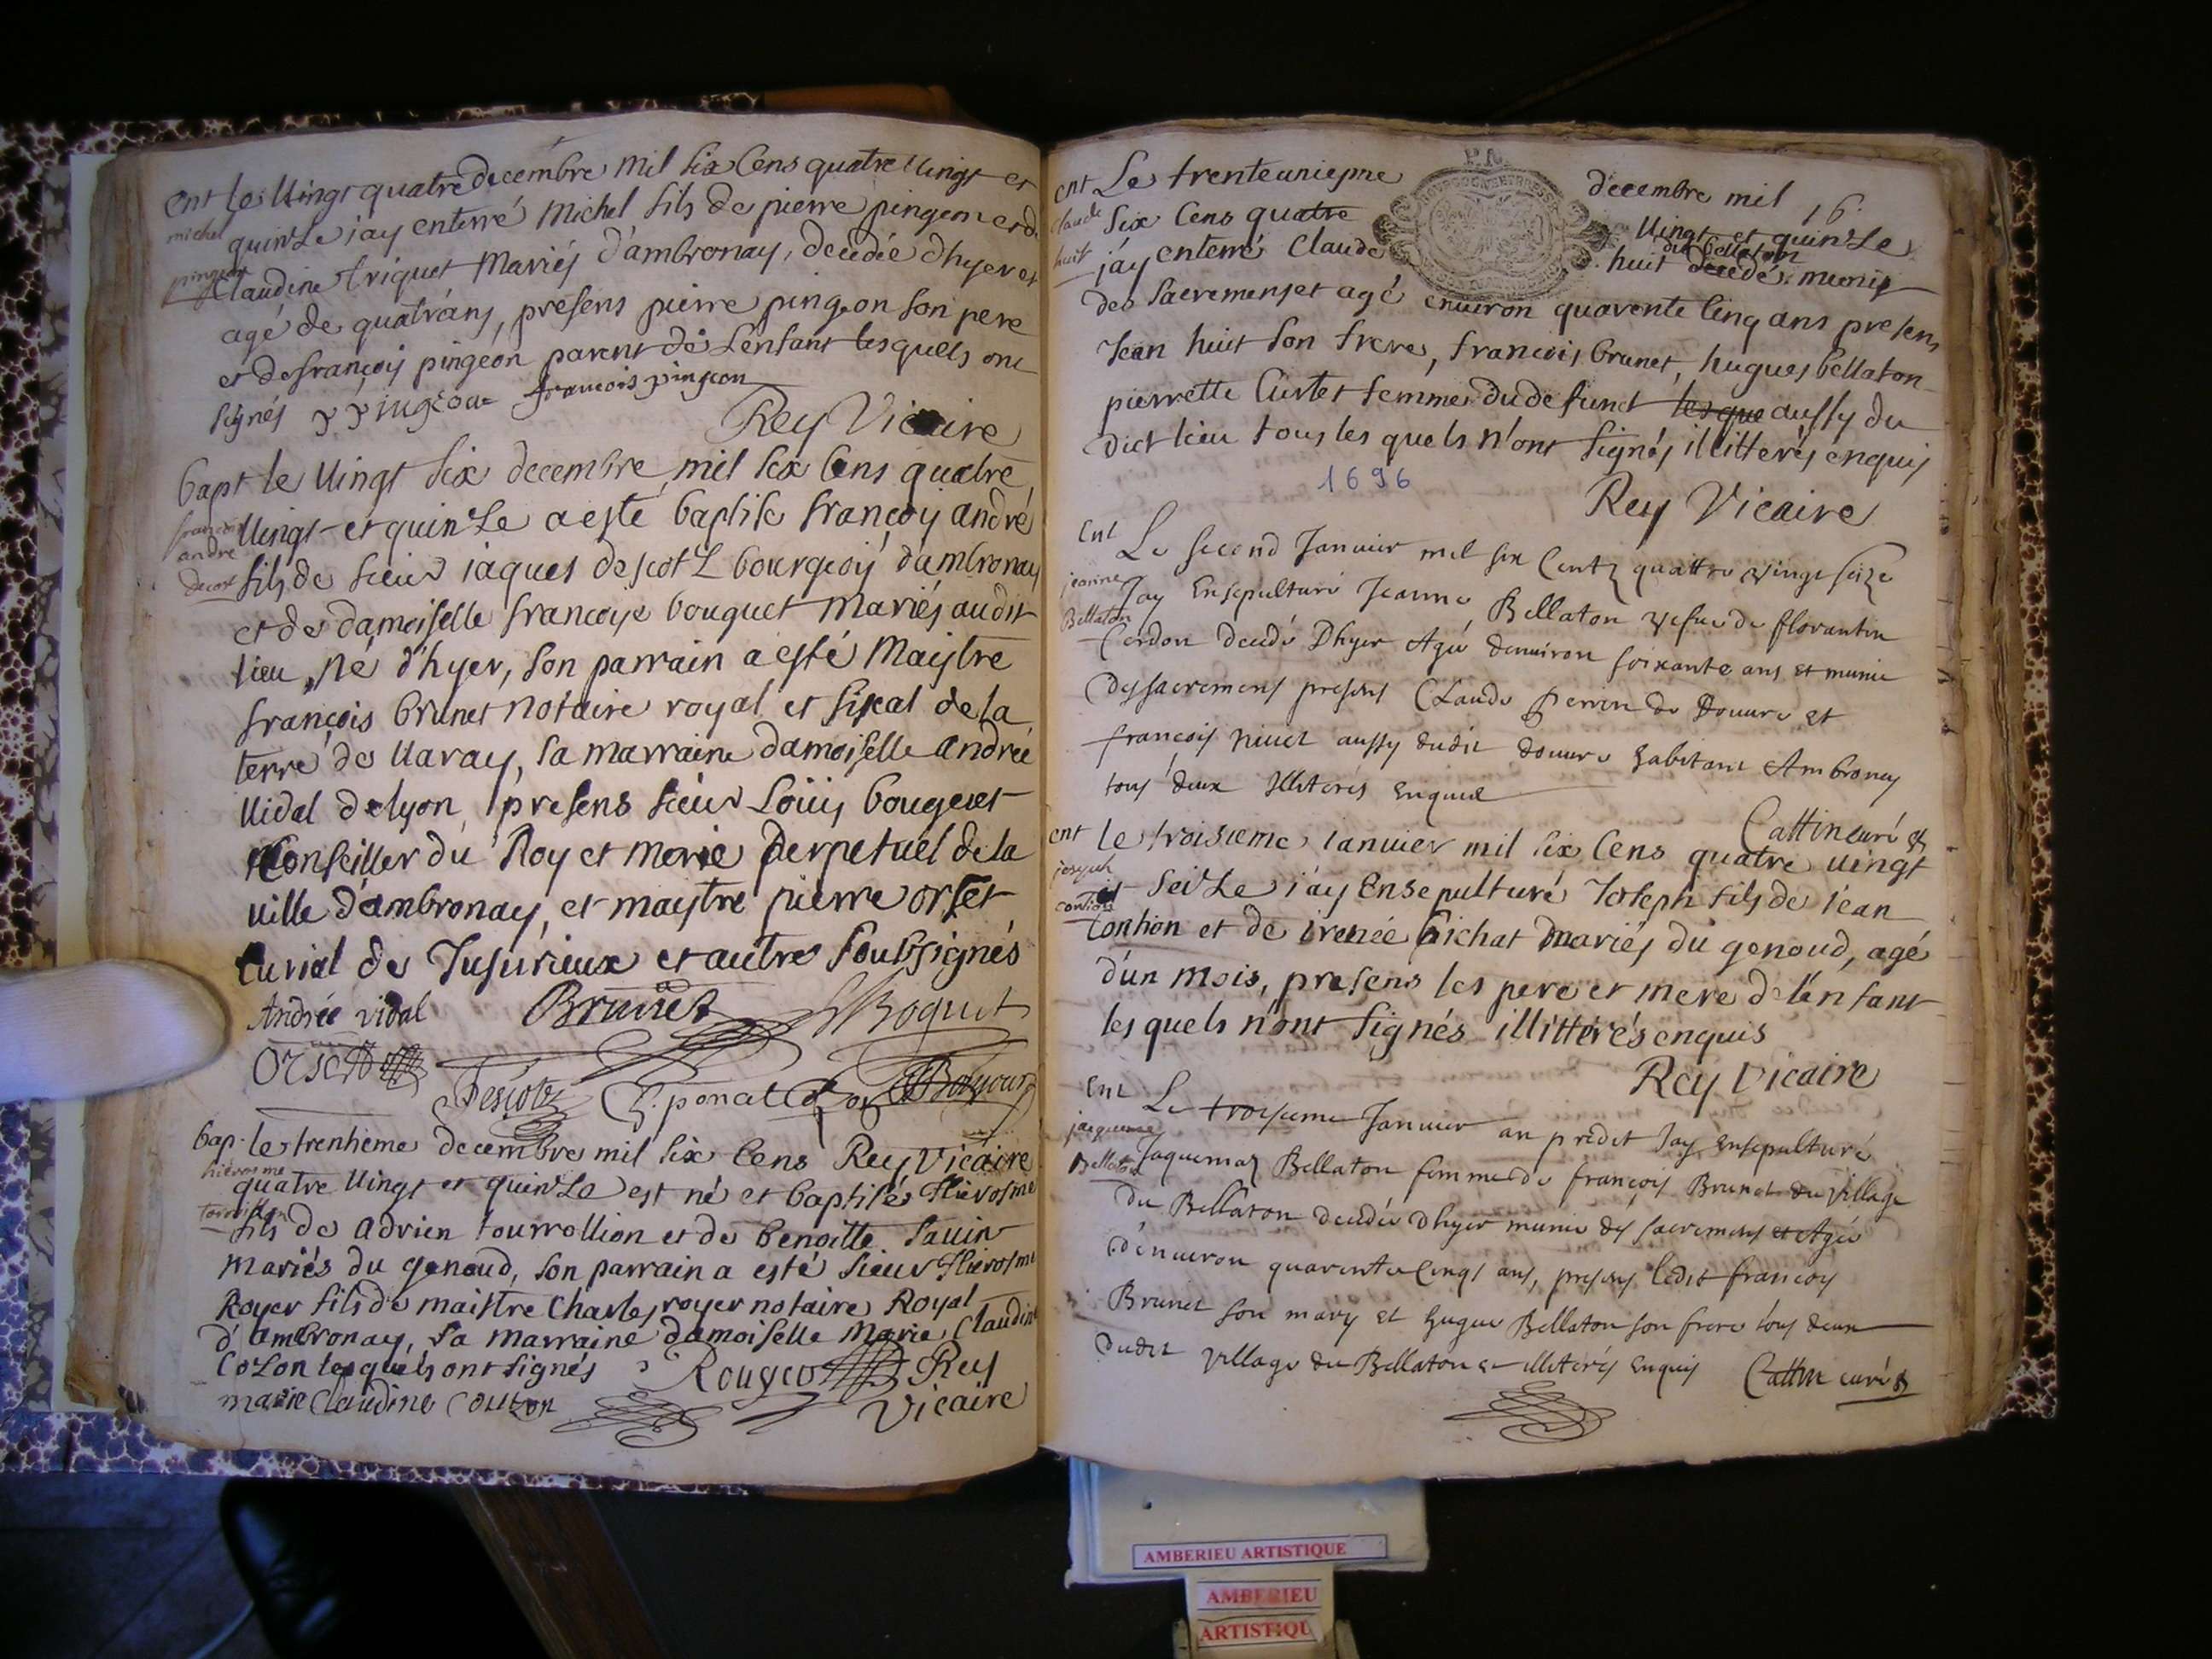 ent le vingt quatre decembre mil six cens quatre vingt et
michel quinze j'ay enterré Michel fils de pierre pingeon et d
pingeon Claudine triquet Mariés d'ambronay, decedée d'hyer et
agé de quatr'ans, presens pierre pingeon son pere
et de françois pingeon parent de l'enfant lesquels ont
signés p pingeon francois pingeon
Rey Vicaire
bapt le vingt six decembre mil six cens quatre
françois vingt et quinze a esté baptisé françois andré
andre
descot fils de sieur jaques descotz bourgeois d'ambronay
et de damoiselle françoise bouquet mariés audit
lieu, né d'hyer, son parrain a esté Maistre
françois brunet notaire royal et fiscal de la
terre de varay, sa marraine damoiselle andrée
vidal de lyon, presens sieur Loüis bouquet
Conseiller du Roy et maire perpetuel de la
ville d'ambronay, et maystre pierre orset
curial de Jusurieux et autre soubsignés
Andrée vidal Brunet LBoquet
Orset Descotz ponat
Bap. le trentieme decembre mil six cens Rey Vicaire
hierosme quatre vingt et quinze est né et baptisé Hierosme
fils de adrien tourrollion et de benoitte sauin
mariés du genoud, son parrain a esté sieur Hierosme
Royer fils de maistre Charles royer notaire Royal
d'ambronay, sa marraine damoiselle Marie Claudine
Cozon lesquels ont signés Rey
marie Claudine Couzon Vicaire
ent Le trente unieme decembre mil 16
claude six cens quatre vingt et quinze
huit j'ay enterré Claude huit du bellaton decedé munis
des sacremens et agé enuiron quarente cinq ans presens
Jean huit son frere, francois brunet, hugues bellaton
pierrette Curtet femme du defunct lesque aussy du
dict lieu tous les quels n'ont signés illitterés enquis
1696
Rey Vicaire
Ent Le second Januier mil six centz quattre vingt seize
jeanne Jay Ensepulturé Jeanne Bellaton vefue de florantin
Bellaton Cerdon decedé Dhyer Agée denuiron soixante ans et munie
des sacremens presens Claude Perrin de Douure et
françois niuet aussy dudit douure habitant Ambronay
tous deux Illiterés Enquis
Cattin curé
ent le troisieme ianuier mil six cens quatre vingt
joseph et seize j'ay Ensepulturé Joseph fils de jean
contion Contion et de irenée bichat mariés du genoud, agé
d'un mois, presens les pere et mere de l'enfant
les quels n'ont signés illittérés enquis
Rey Vicaire
Ent Le troisieme Januier an predit Jay Ensepulturé
jaquema Jaquemaz Bellaton femme de françois Brunet du village
Bellaton du Bellaton decedée dhyer munie des sacremens et Agée
d'enuiron quarente cinqt ans, presens ledit françois
Brunet son mary et hugue Bellaton son frere tous deux
dudit village du Bellaton et illiterés enquis Cattin curé
AMBERIEU ARTISTIQUE
AMBERIEU
ARTISTIQU